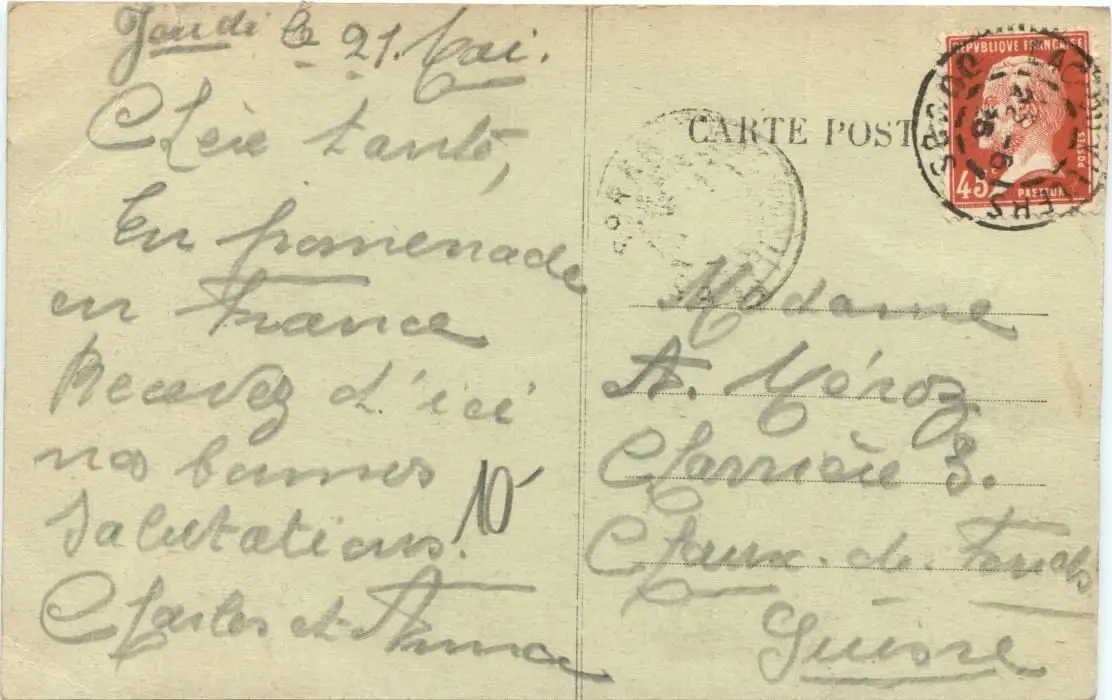 Jeudi le 21. Mai.
Chère tante,
En promenade
en France
Recevez d'ici
nos bonnes
salutations.
Charles et Anna
10
CARTE POST
REPVBLIQUE FRANÇAISE
45c
POSTES
PASTEUR
DOUBS
Madame
A. Méroz
Charrière 3.
Chaux-de-Fonds
Suisse